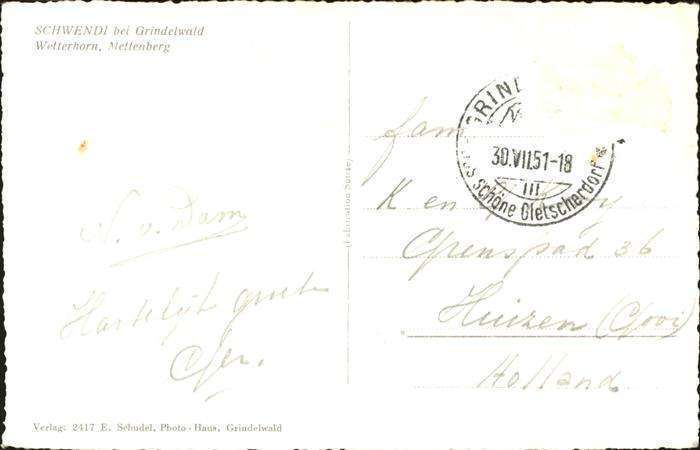 SCHWENDI bei Grindelwald
Wetterhorn, Mettenberg
N. v. Dam
Hartelijk groeten
Ger.
Verlag: 2417 E. Schudel, Photo-Haus, Grindelwald
GRIND
30.VII.51-18
III
das schöne Gletscherdorf
fam
36
Huizen (Gooi)
Holland